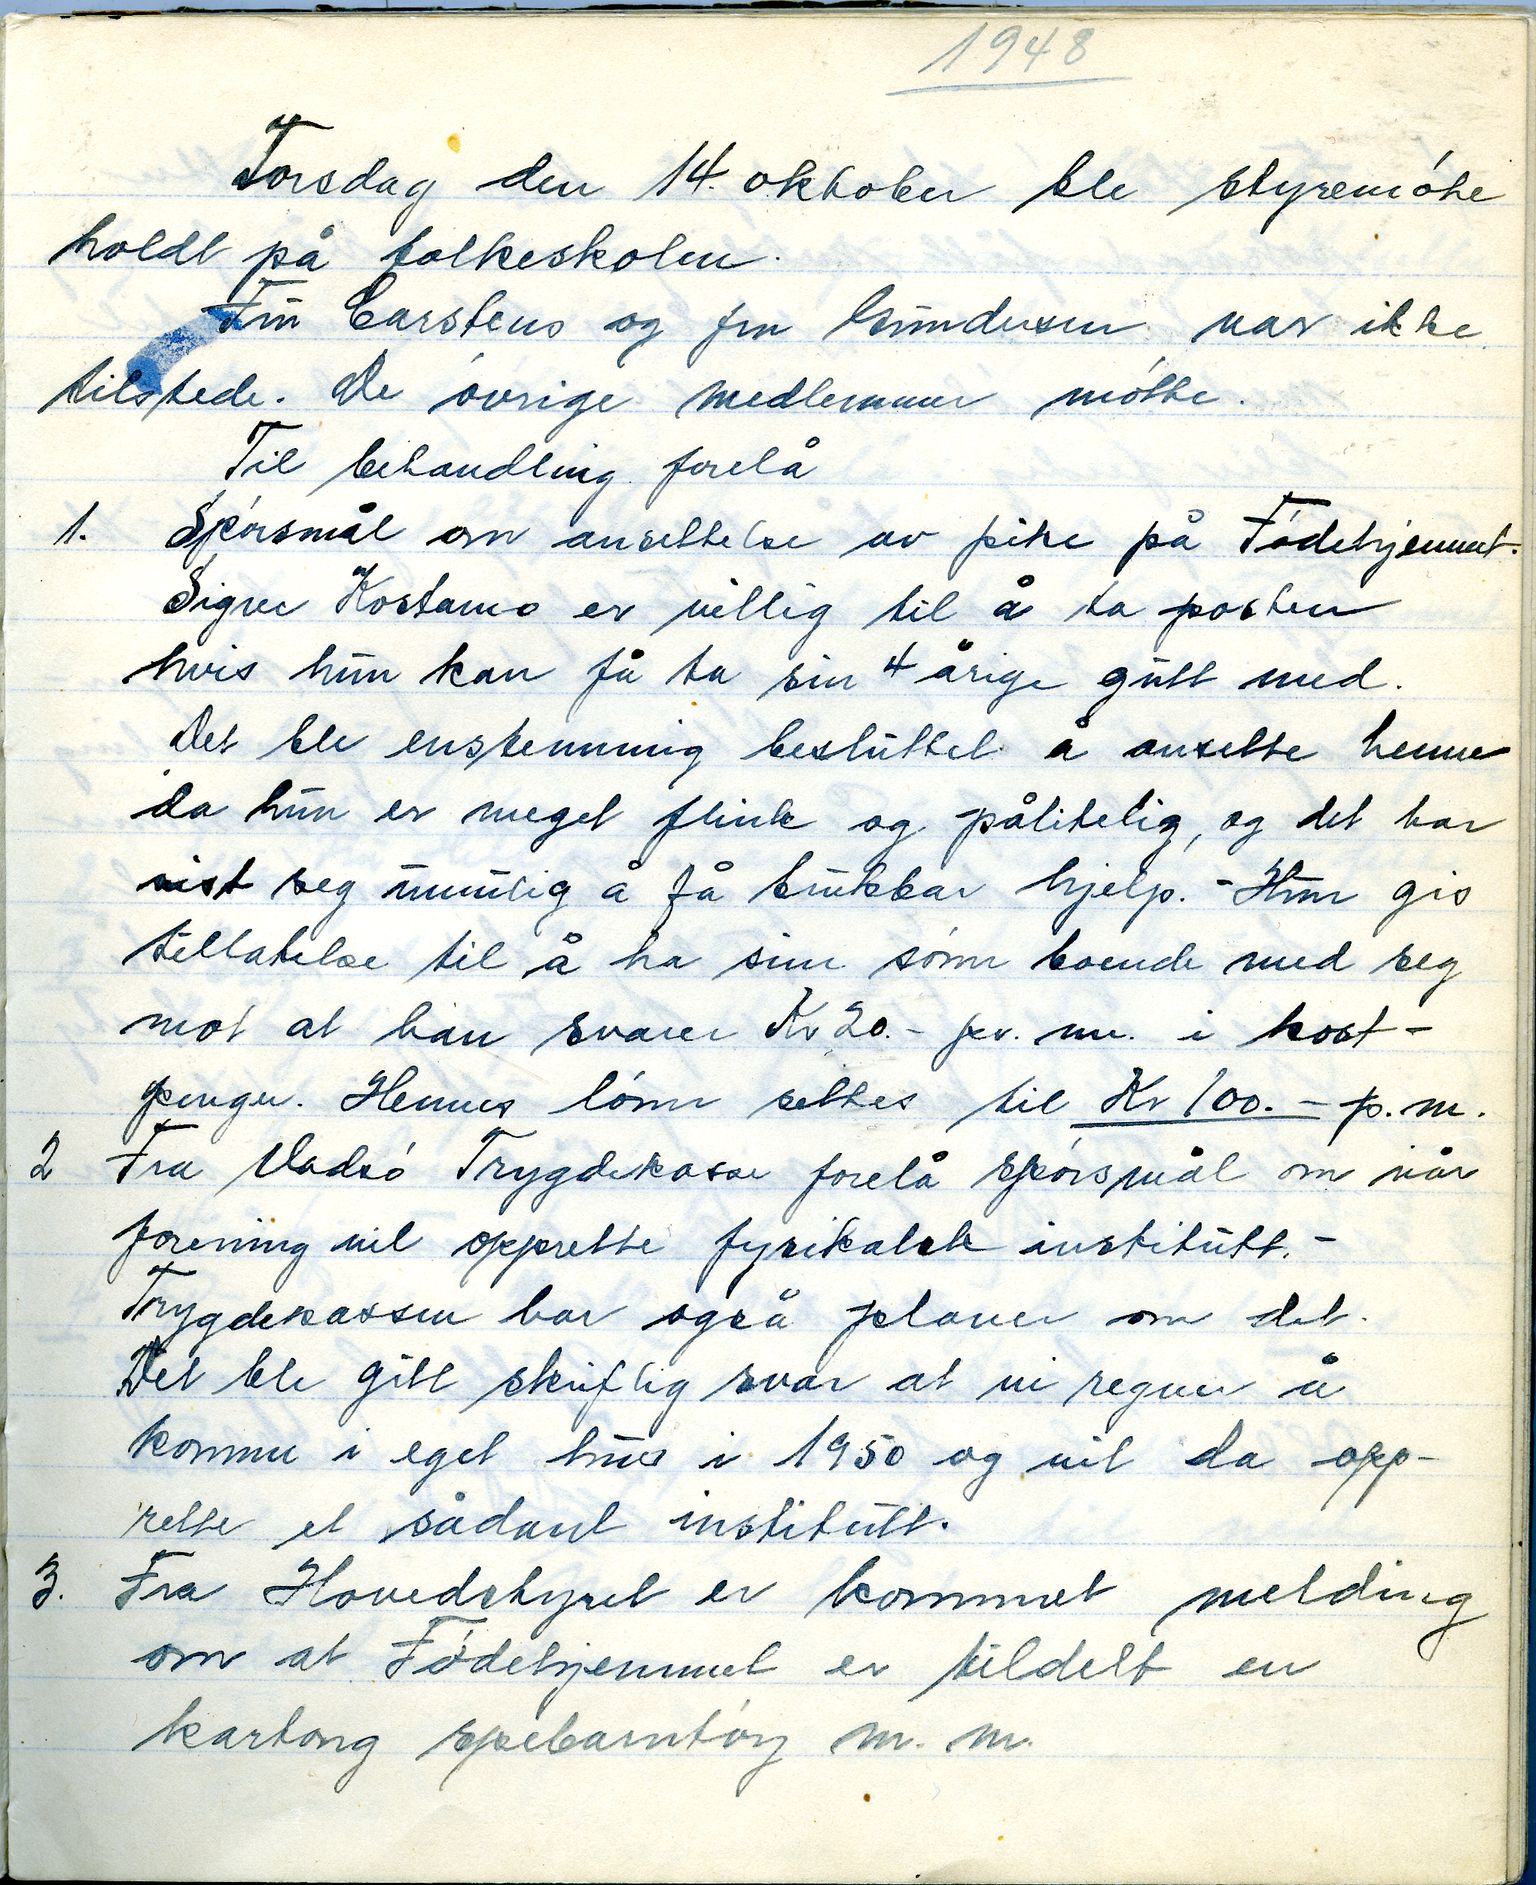 1948
Torsdag den 14. oktober ble styremöte
holdt på folkeskolen.
Fru Carstens og fru Gundersen var ikke
tilstede. De övrige medlemmer mötte.
Til behandling forelå
1. Spörsmål om ansettelse av pike på Födehjemmet.
Signe Kostamo er villig til å ta posten
hvis hun kan få ta sin 4 årige gutt med.
Det ble enstemmig besluttet å ansette henne
da hun er meget flink og pålitelig, og det har
vist seg umulig å få brukbar hjelp. - Hun gis
tillatelse til å ha sin sönn boende med seg
mot at han svarer Kr 20.- pr. m. i kost-
penger. Hennes lönn settes til Kr 100.- p. m.
2 Fra Vadsö Trygdekasse forelå spörsmål om vår
forening vil opprette fysikalsk institutt. -
Trygdekassen har også planer om det.
Det ble gitt skriftlig svar at vi regner å
komme i eget hus i 1950 og vil da opp-
rette et sådant institutt.
3. Fra Hovedstyret er kommet melding
om at Födehjemmet er tildelt en
kartong spebarntöy m. m.